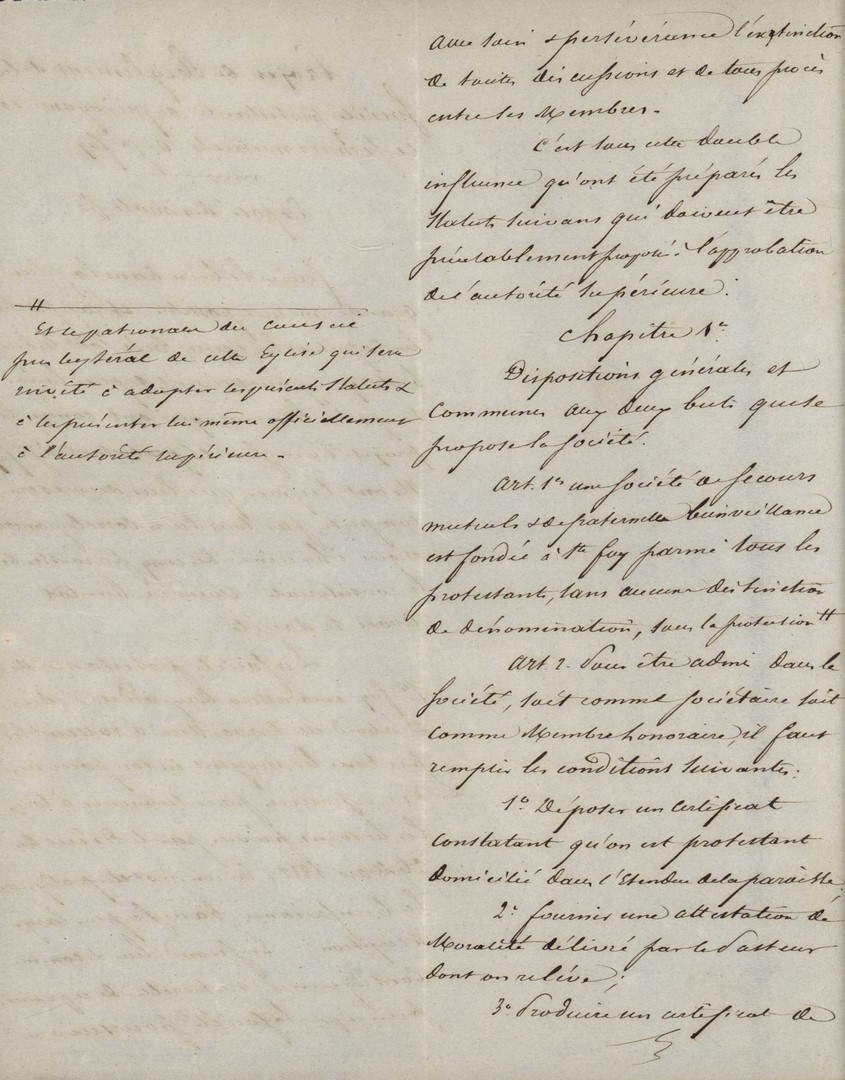 avec soin & persévérance l'extinction
de toutes discussions et de tous procès
entre les Membres.
C'est sous cette double
influence qu'ont été préparés les
Statuts suivans qui doivent être
préalablement proposés à l'approbation
de l'autorité supérieure.
Chapitre 1er
Dispositions générales et
Communes aux deux buts que se
propose la Société.
Art. 1er une Société de Secours
mutuels & de fraternelle bienveillance
est fondée à Ste foy parmi tous les
protestants, sans aucune distinction
de dénomination, sous la protection #
Art. 2. Pour être admis dans la
Société, soit comme Sociétaire soit
comme Membre honoraire, il faut
remplir les conditions suivantes:
1o Déposer un Certificat
Constatant qu'on est protestant
domicilié dans l'Etendue de la paroisse.
2o fournir une attestation de
Moralité délivré par le Pasteur
dont on relève;
3o Produire un certificat de
#
Et le patronage du Conseil
presbytéral de cette Eglise qui sera
invité à adopter les présents Statuts &
à les présenter lui même officiellement
à l'autorité supérieure.